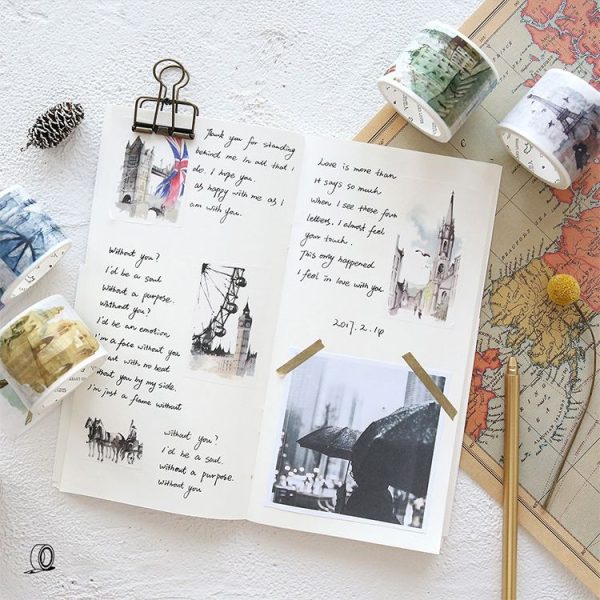 Thank you for standing
behind me in all that I
do. I hope you
as happy with me as I
am with you.
Without you?
I'd be a soul
Without a purpose.
Without you?
I'd be an emotion
I'm a face without you
with no beat
Without you by my side.
I'm just a flame without
Without you?
I'd be a soul.
Without a purpose.
Without you
Love is more than
It says so much
When I see these four
letters. I almost feel
your touch.
This only happened
I feel in love with you
2017.2.14